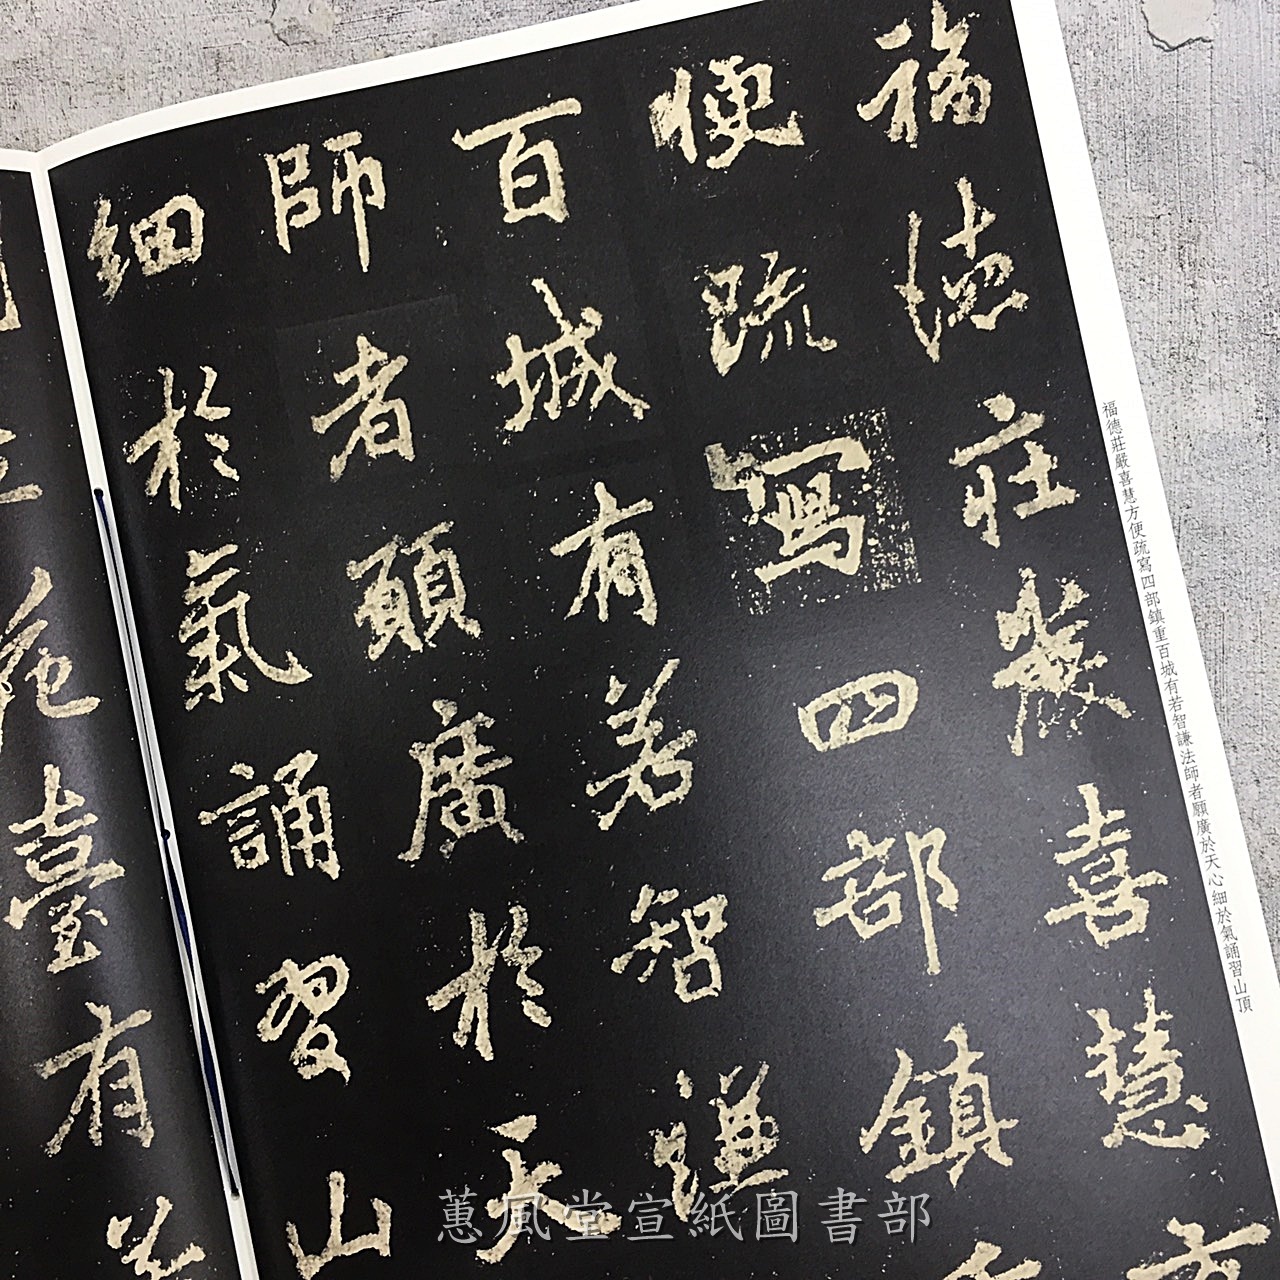 福德莊嚴喜慧方
便疏寫四部鎮
百城有若智謙
師者願廣於天
細於氣誦習山
臺有
福德莊嚴喜慧方便疏寫四部鎮重百城有若智謙法師者願廣於天心細於氣誦習山頂
蕙風堂宣紙圖書部